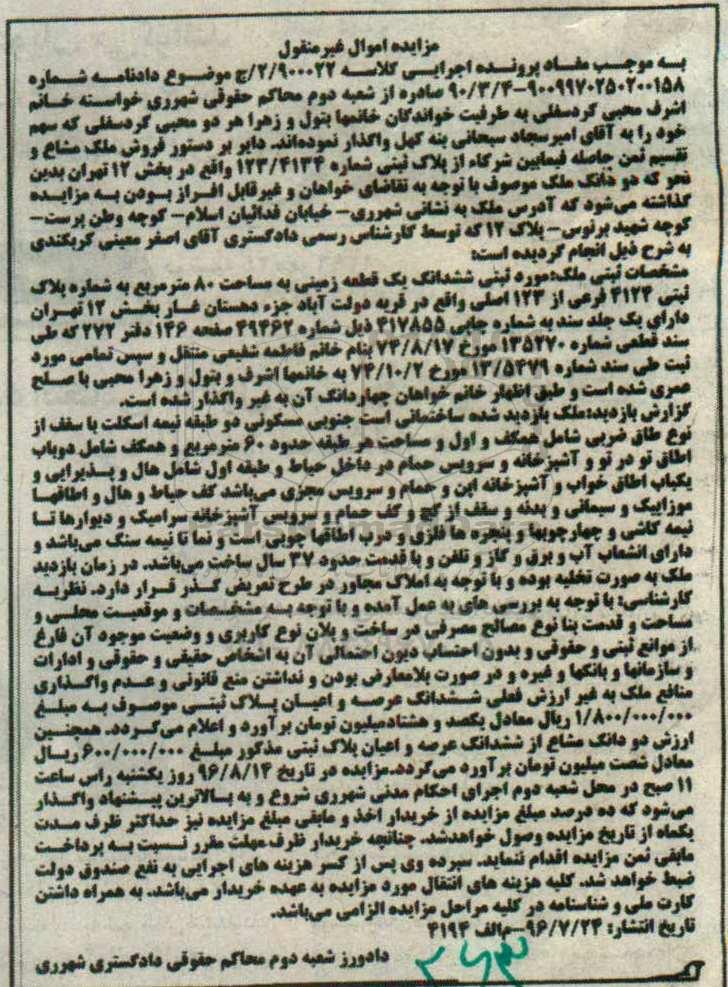 مزایده اموال غیرمنقول
به موجب مفاد پرونده اجرایی کلاسه ۲/۹۰۰۰۲۲/ج موضوع دادنامه شماره
۹۰۰۹۹۷۰۲۵۰۲۰۰۱۵۸-۹۰/۳/۴ صادره از شعبه دوم محاکم حقوقی شهرری خواسته خانم
اشرف محبی کردسفلی به طرفیت خواندگان خانمها بتول و زهرا هر دو محبی کردسفلی که سهم
خود را به آقای امیرسجاد سبحانی بنه کهل واگذار نموده‌اند. دایر بر دستور فروش ملک مشاع و
تقسیم ثمن حاصله فیمابین شرکاء از پلاک ثبتی شماره ۱۲۳/۴۱۳۴ واقع در بخش ۱۲ تهران بدین
نحو که دو دانک ملک موصوف با توجه به تقاضای خواهان و غیرقابل افراز بودن به مزایده
گذاشته می‌شود که آدرس ملک به نشانی شهرری- خیابان فدائیان اسلام- کوچه وطن پرست-
کوچه شهید برنوس- پلاک ۱۲ که توسط کارشناس رسمی دادگستری آقای اصغر معینی کربکندی
به شرح ذیل انجام گردیده است:
مشخصات ثبتی ملک:مورد ثبتی ششدانک یک قطعه زمینی به مساحت ۸۰ مترمربع به شماره پلاک
ثبتی ۴۱۲۴ فرعی از ۱۲۳ اصلی واقع در قریه دولت آباد جزء دهستان غار بخش ۱۲ تهران
دارای یک جلد سند به شماره چاپی ۴۱۷۸۵۵ ذیل شماره ۴۹۴۶۲ صفحه ۱۴۶ دفتر ۲۷۲ که طی
سند قطعی شماره ۱۳۵۲۷۰ مورخ ۷۴/۸/۱۷ بنام خانم فاطمه شفیعی منتقل و سپس تمامی مورد
ثبت طی سند شماره ۱۳/۵۴۷۹ مورخ ۷۴/۱۰/۲ به خانمها اشرف و بتول و زهرا محبی با صلح
عمری شده است و طبق اظهار خانم خواهان چهاردانگ آن به غیر واگذار شده است.
گزارش بازدید:ملک بازدید شده ساختمانی است جنوبی مسکونی دو طبقه نیمه اسکلت با سقف از
نوع طاق ضربی شامل همکف و اول و مساحت هر طبقه حدود ۶۰ مترمربع و همکف شامل دوباب
اطاق تو در تو و آشپزخانه و سرویس حمام در داخل حیاط و طبقه اول شامل هال و پذیرایی و
یکباب اطاق خواب و آشپزخانه اپن و حمام و سرویس مجزی می‌باشد کف حیاط و هال و اطاقها
موزاییک و سیمانی و بدنه و سقف از گچ و کف حمام و سرویس آشپزخانه سرامیک و دیوارها تا
نیمه کاشی و چهارچوبها و پنجره ها فلزی و درب اطاقها چوبی است و نما تا نیمه سنگ می‌باشد و
دارای انشعاب آب و برق و گاز و تلفن و با قدمت حدود ۳۷ سال ساخت می‌باشد. در زمان بازدید
ملک به صورت تخلیه بوده و با توجه به املاک مجاور در طرح تعریض گذر قرار دارد. نظریه
کارشناسی: با توجه به بررسی های به عمل آمده و با توجه به مشخصات و موقعیت محلی و
مساحت و قدمت بنا نوع مصالح مصرفی در ساخت و پلان نوع کاربری و وضعیت موجود آن فارغ
از موانع ثبتی و حقوقی و بدون احتساب دیون احتمالی آن به اشخاص حقیقی و حقوقی و ادارات
و سازمانها و بانکها و غیره و در صورت بلامعارض بودن و نداشتن منع قانونی و عدم واگذاری
منافع ملک به غیر ارزش فعلی ششدانک عرصه و اعیان پلاک ثبتی موصوف به مبلغ
۱/۸۰۰/۰۰۰/۰۰۰ ریال معادل یکصد و هشتادمیلیون تومان برآورد و اعلام می‌گردد. همچنین
ارزش دو دانک مشاع از ششدانک عرصه و اعیان پلاک ثبتی مذکور مبلغ ۶۰۰/۰۰۰/۰۰۰ ریال
معادل شصت میلیون تومان برآورد می‌گردد.مزایده در تاریخ ۹۶/۸/۱۴ روز یکشنبه راس ساعت
۱۱ صبح در محل شعبه دوم اجرای احکام مدنی شهرری شروع و به بالاترین پیشنهاد واگذار
می‌شود که ده درصد مبلغ مزایده از خریدار اخذ و مابقی مبلغ مزایده نیز حداکثر ظرف مدت
یکماه از تاریخ مزایده وصول خواهدشد. چنانچه خریدار ظرف مهلت مقرر نسبت به پرداخت
مابقی ثمن مزایده اقدام ننماید. سپرده وی پس از کسر هزینه های اجرایی به نفع صندوق دولت
ضبط خواهد شد. کلیه هزینه های انتقال مورد مزایده به عهده خریدار می‌باشد. به همراه داشتن
کارت ملی و شناسنامه در کلیه مراحل مزایده الزامی می‌باشد.
تاریخ انتشار: ۹۶/۷/۲۴-م‌الف ۴۱۹۴
دادورز شعبه دوم محاکم حقوقی دادگستری شهرری